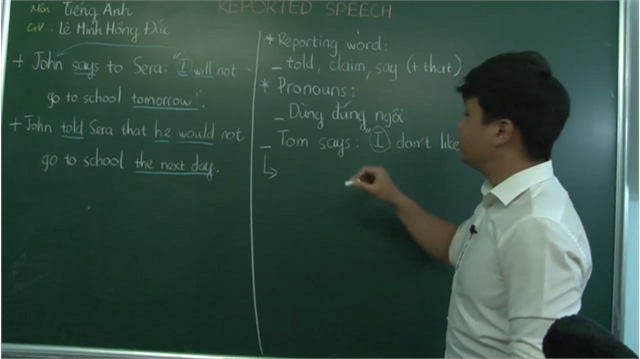 REPORTED SPEECH
Môn: Tiếng Anh
GV: Lê Minh Hồng Đức
+ John says to Sera: "I will not
go to school tomorrow".
+ John told Sera that he would not
go to school the next day.
* Reporting word:
_ told, claim, say (+ that)
* Pronouns:
_ Dùng đúng ngôi
_ Tom says: "I don't like